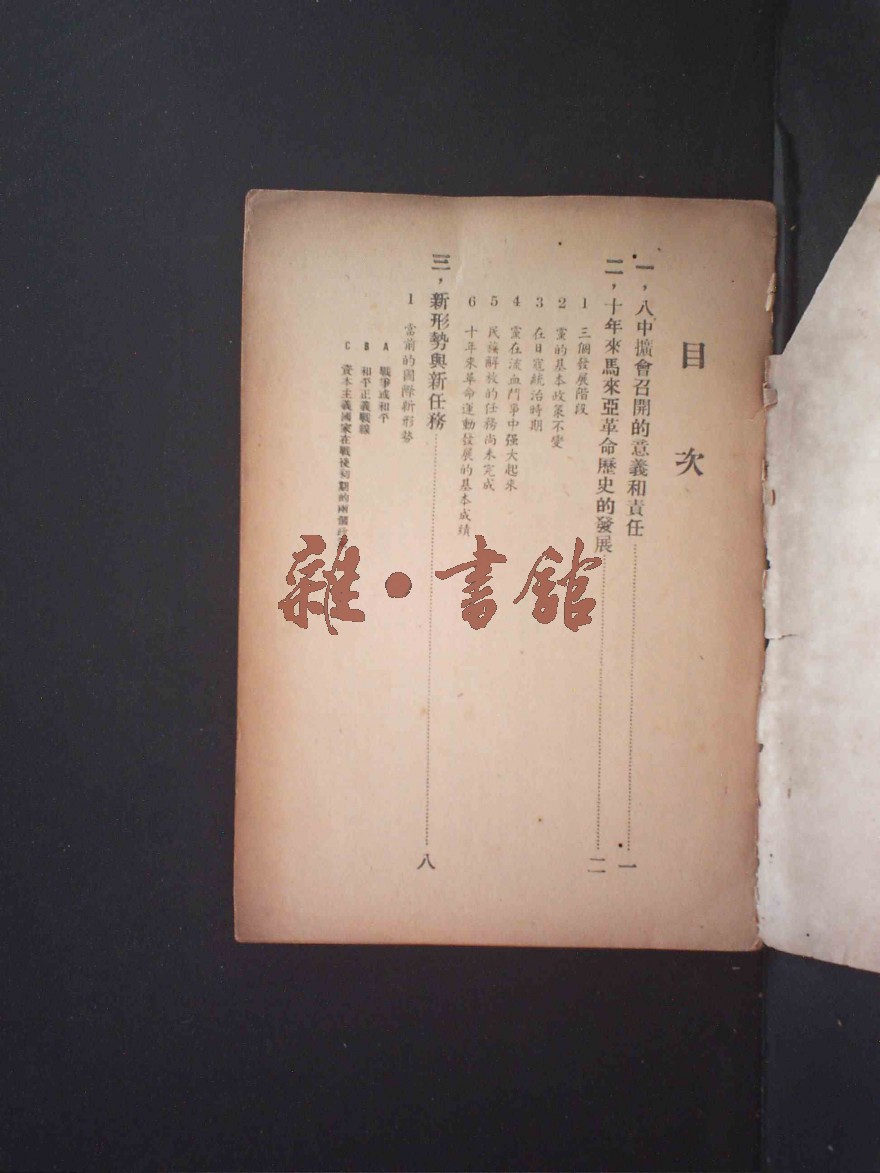 目次
一，八中擴會召開的意義和責任……一
二，十年來馬來亞革命歷史的發展……二
1 三個發展階段
2 黨的基本政策不變
3 在日寇統治時期
4 黨在流血鬥爭中强大起來
5 民族解放的任務尚未完成
6 十年來革命運動發展的基本成績
三，新形勢與新任務……八
1 當前的國際新形勢
A 戰爭或和平
B 和平正義戰線
C 資本主義國家在戰後初期的兩個
雜•書館